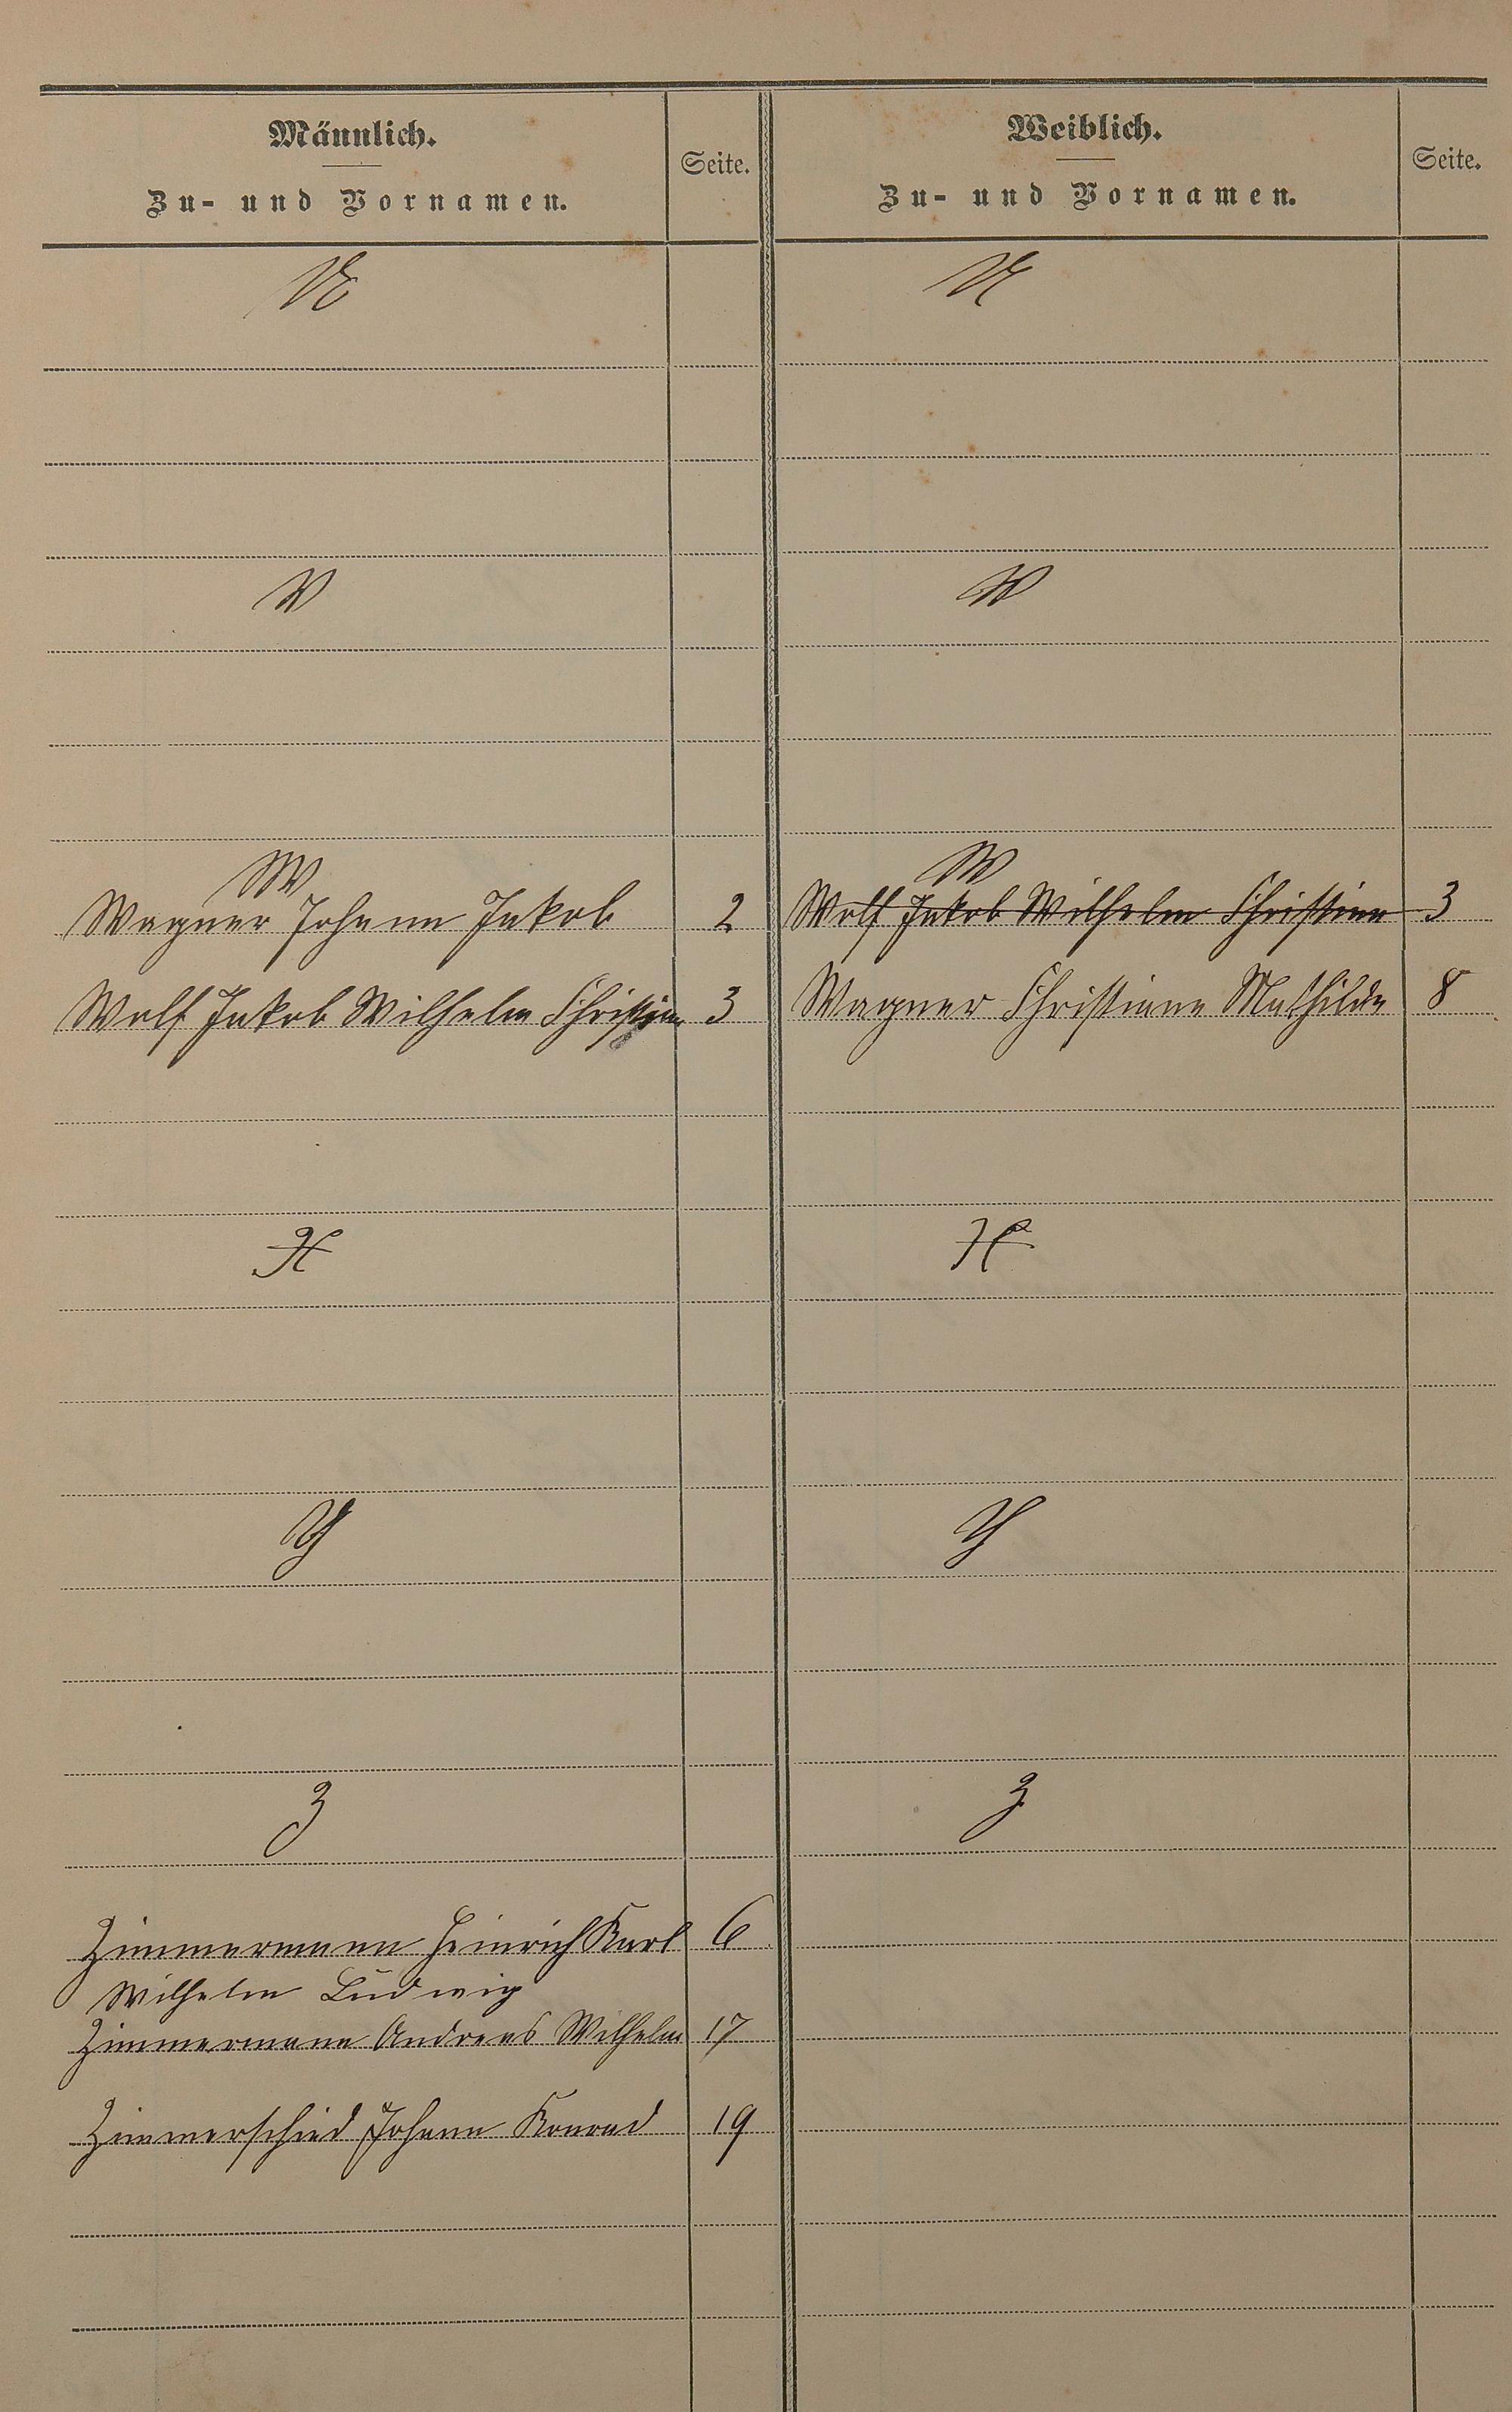 Männlich.
Zu- und Vornamen.
Seite.
Weiblich.
Zu- und Vornamen.
Seite.
U
U
V
V
W
W
Wagner Johann Jakob 2
Wolf Jakob Wilhelm Christian 3
Wolf Jakob Wilhelm Christian 3
Wagner Christiane Mathilde 8
X
X
Y
Y
Z
Z
Zimmermann Heinrich Karl 6
Wilhelm Ludwig
Zimmermann Andreas Wilhelm 17
Zimmerschied Johann Konrad 19